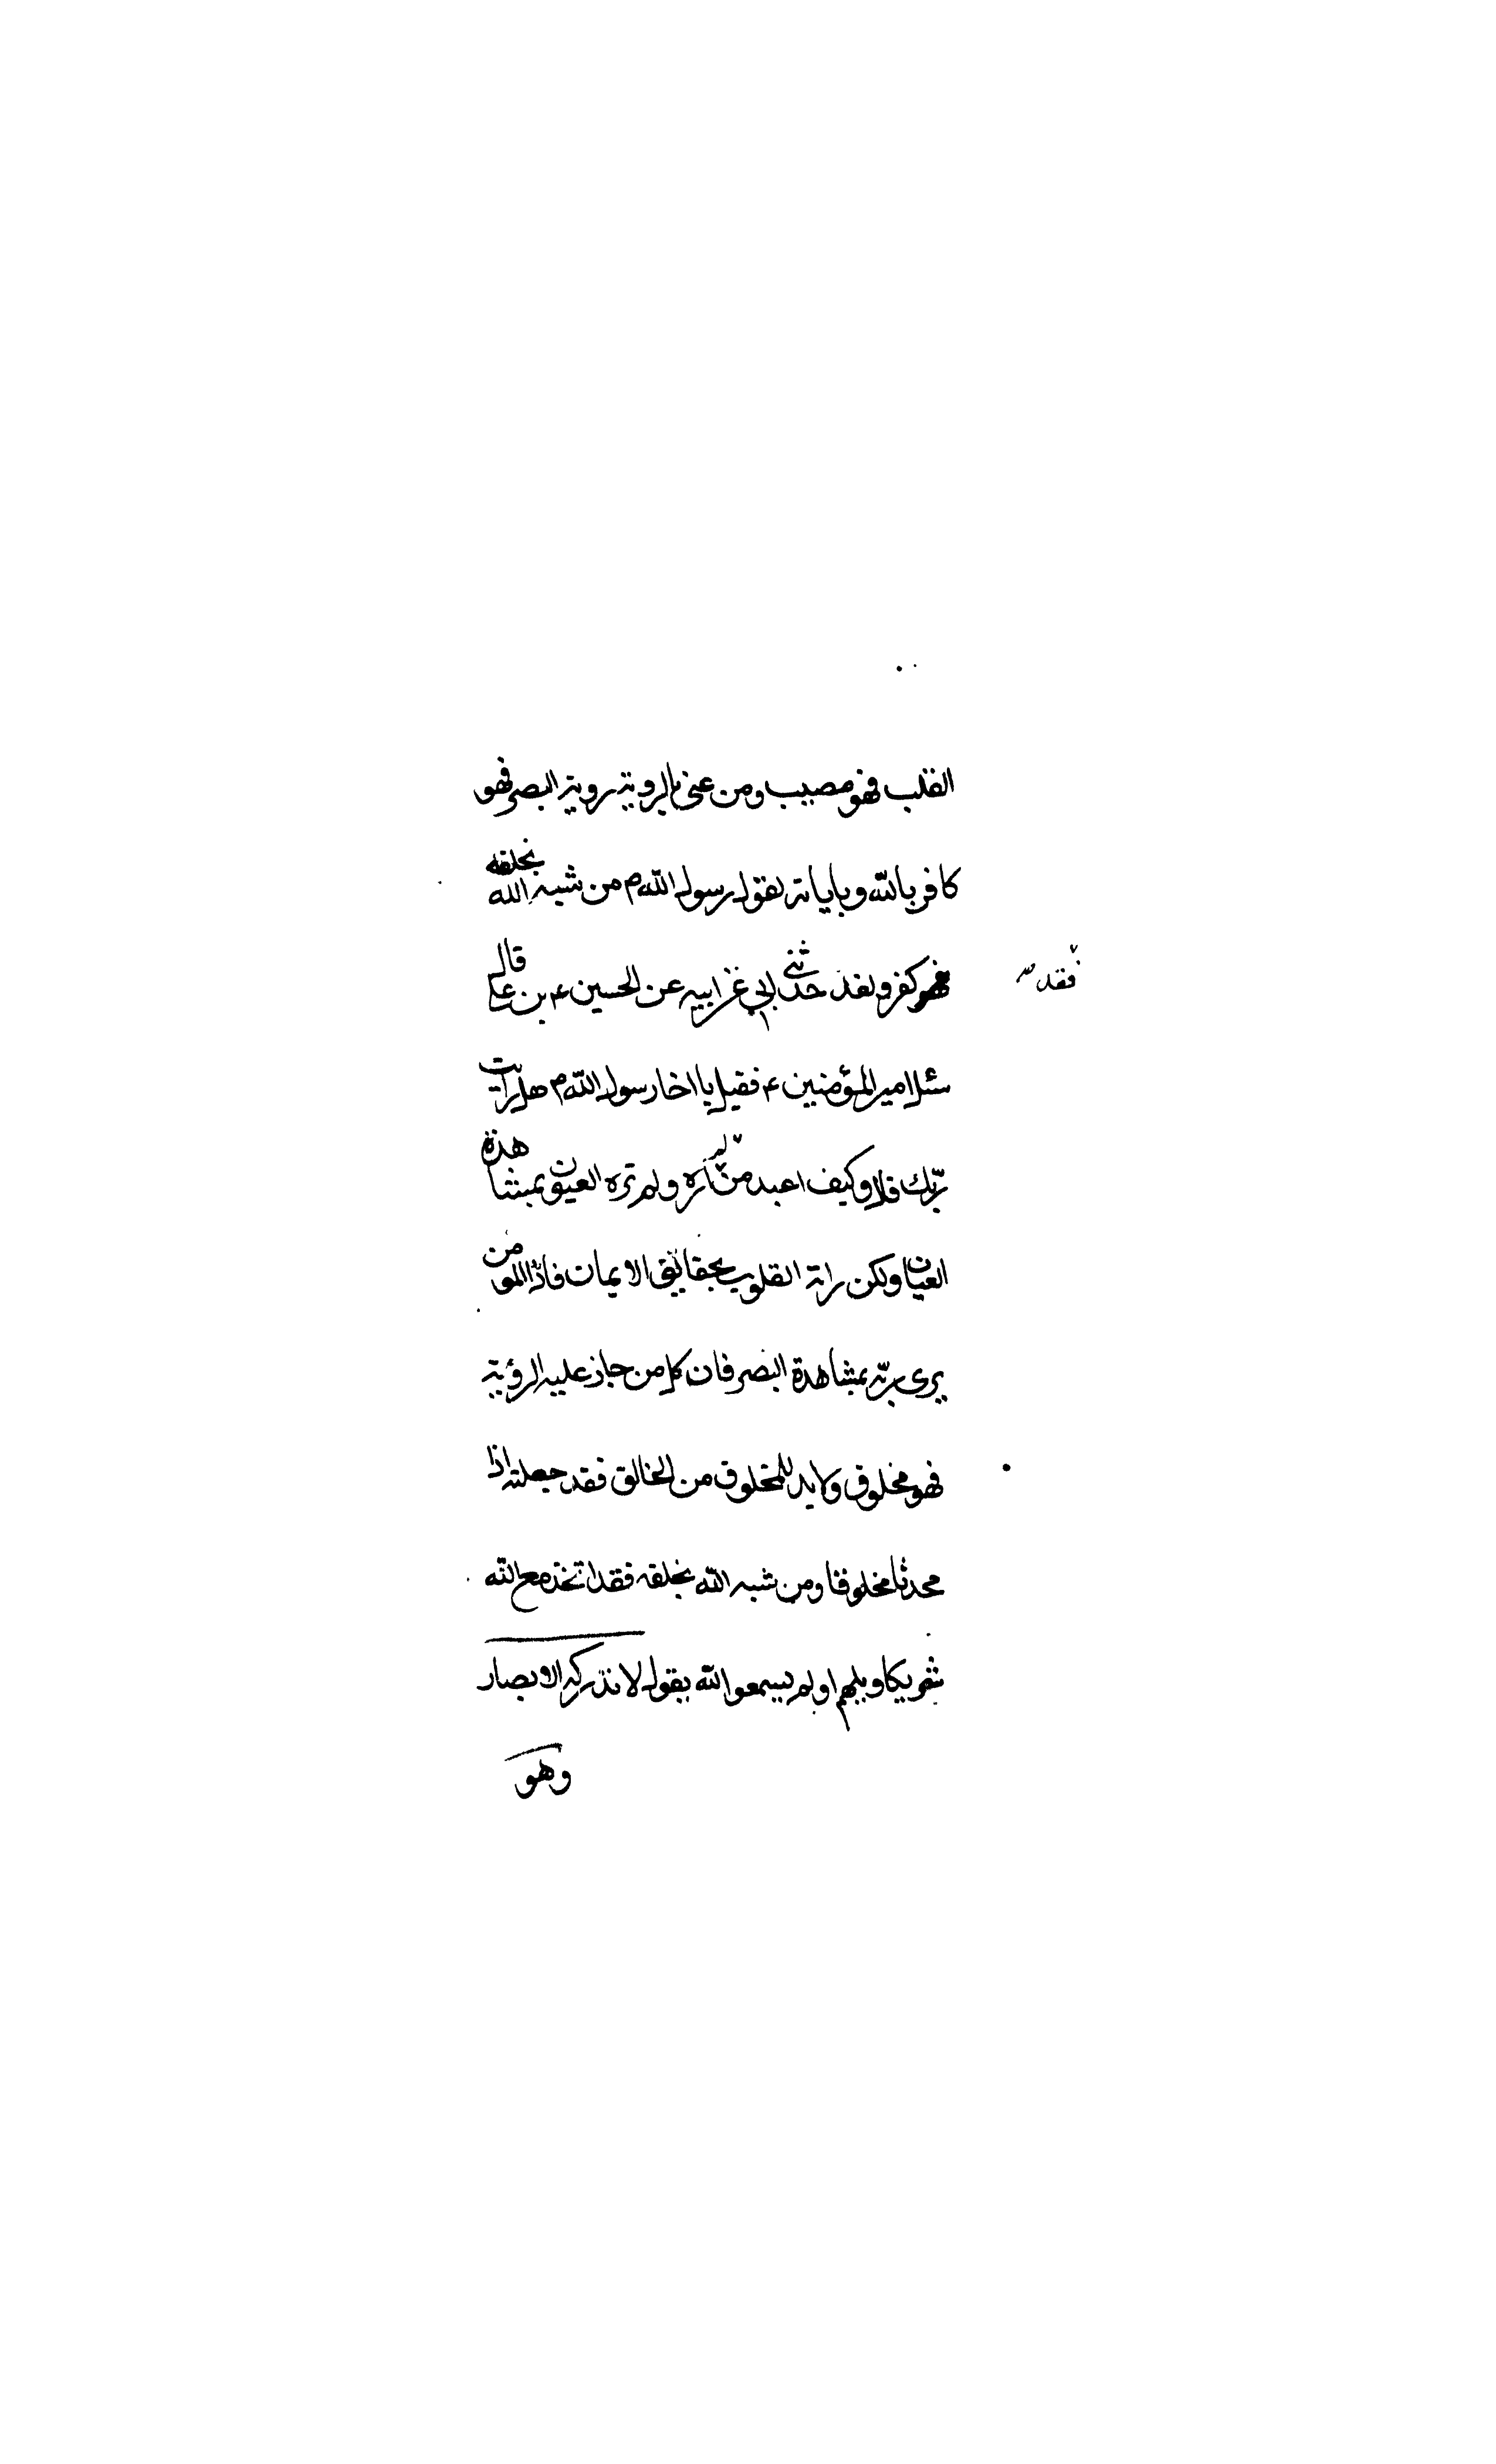 القلب فهو مصيب ومن عنى بالروية روية البصر فهو
كافر بالله وباياته لقول رسول الله م من شبه الله بخلقه
فهو كفر ولقد حدثنى ابي عن ابيه عن الحسين ع بن علي قال
فقد
سئل امير المؤمنين ع فقيل يا اخا رسول الله م هل رايت
ربّك قال وكيف اعبد من لم اره ولم تره العيون بمشاهدة
العيان ولكن راته القلوب بحقائق الايمان فاذا المومن
يرى ربّه بمشاهدة البصر فان كل من جاز عليه الرؤية
فهو مخلوق ولابد للمخلوق من الخالق فقد جعلته اذا
محدثا مخلوقا ومن شبه الله بخلقه فقد اتخذ مع الله
شريكا ويلهم اولم يسمعوا الله يقول لا تدركه الابصار
وهو